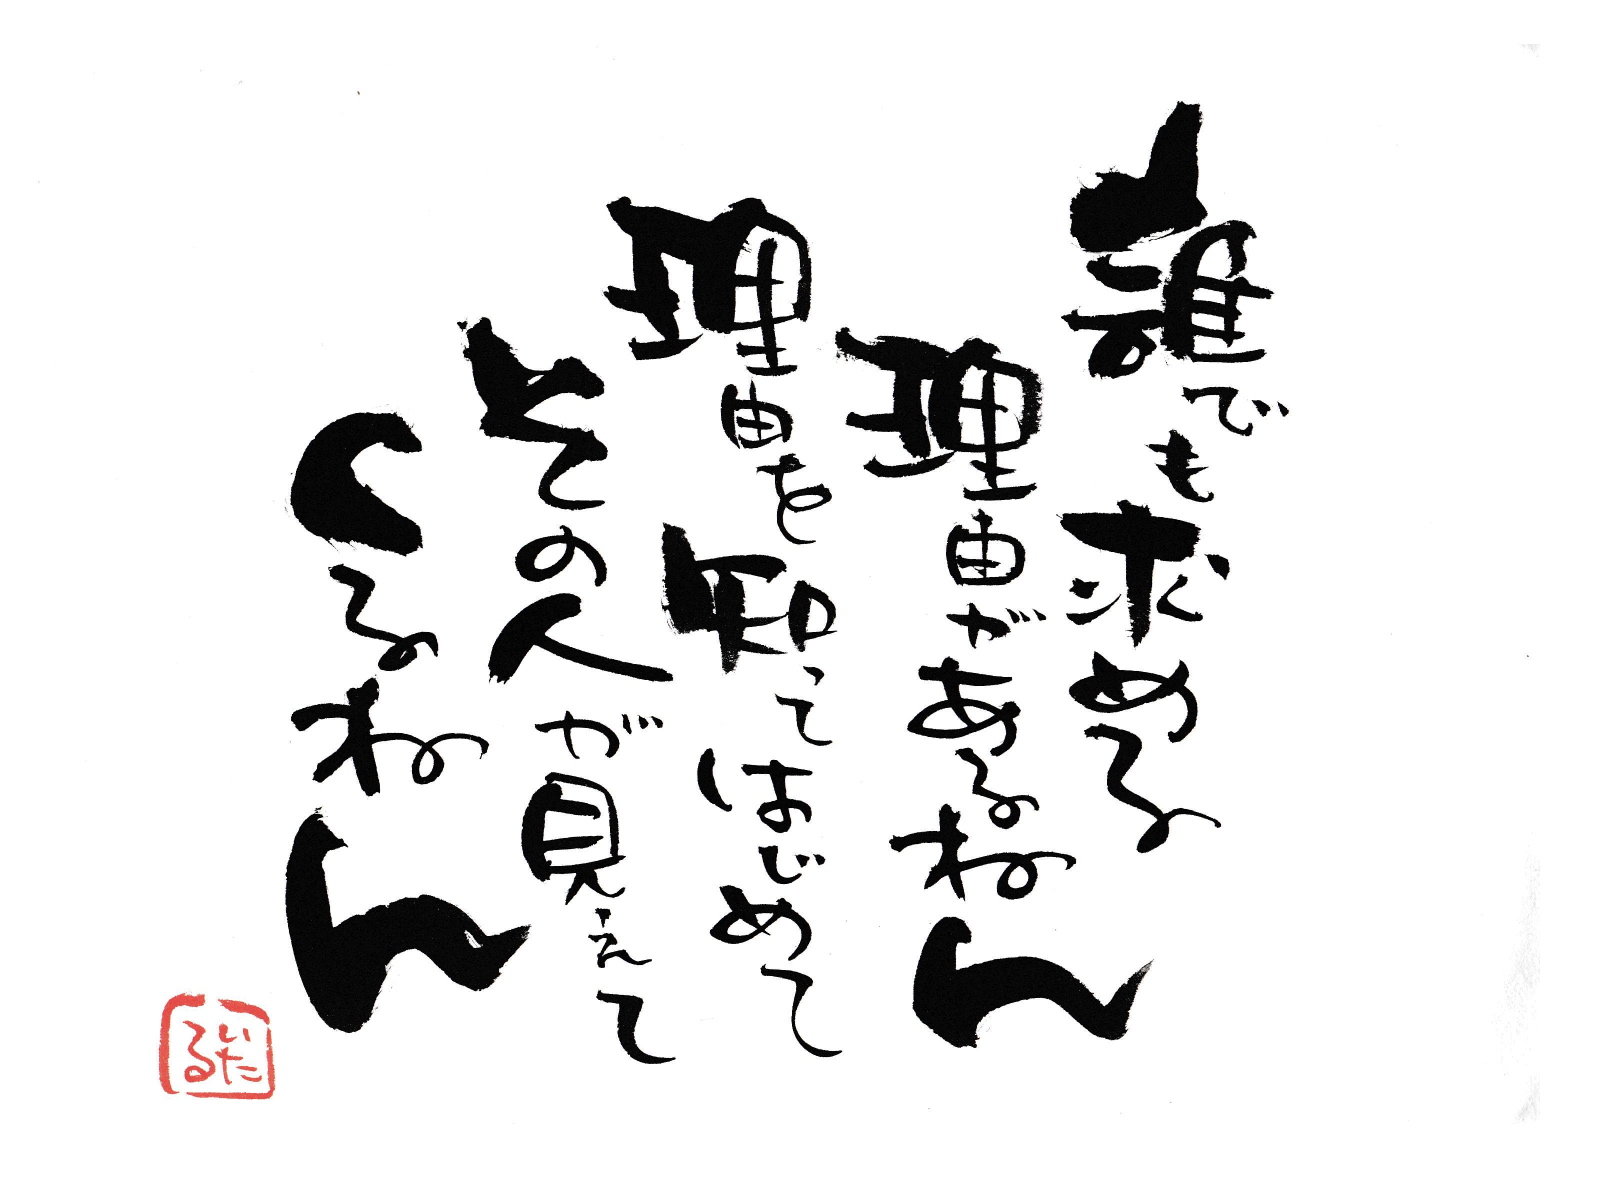 誰でも求める
理由があるねん
理由を知ってはじめて
その人が見えて
くるねん
いたる